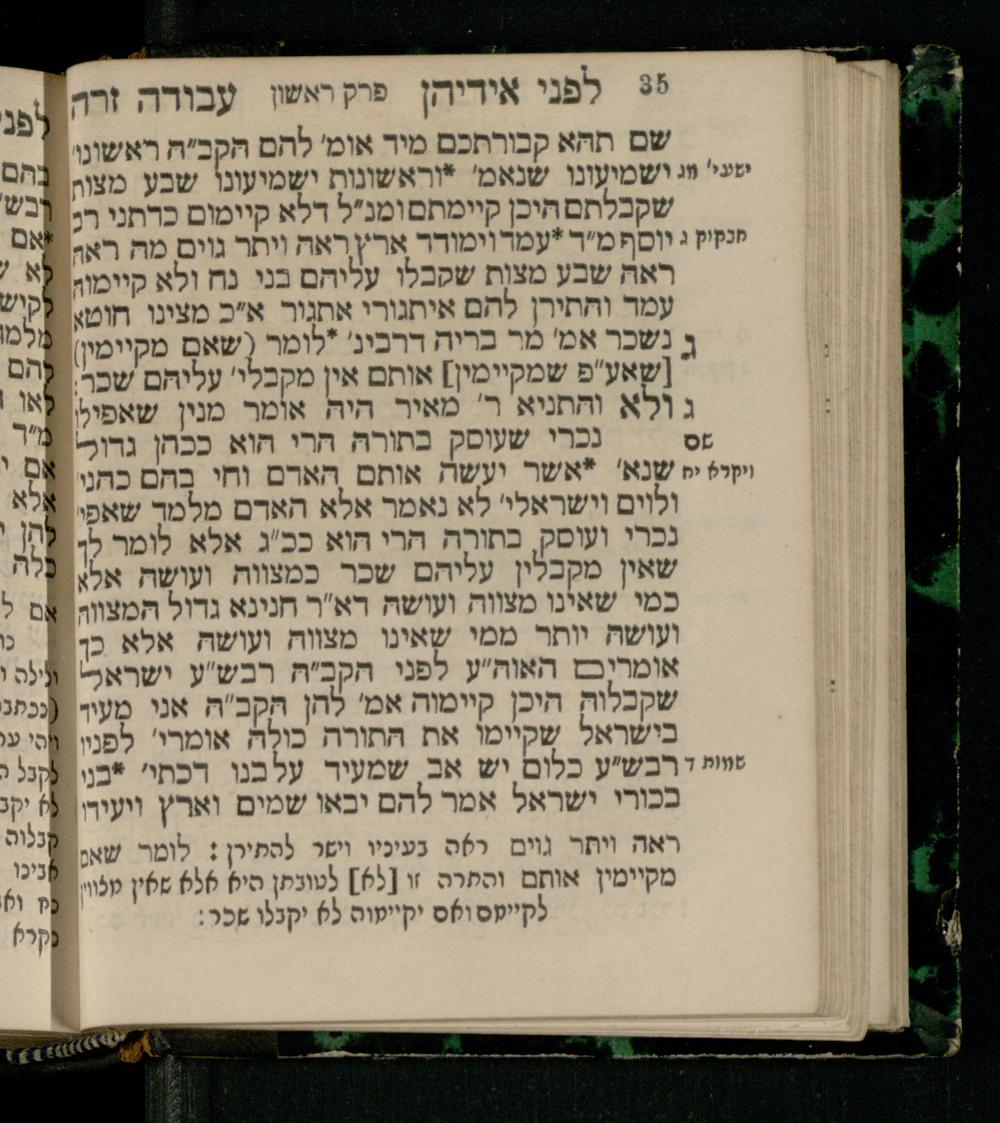 35 לפני אידיהן פרק ראשון עבודה זרה
שם תהא קבורתכם מיד אומ׳ להם הקב״ה ראשונו׳
ישעי׳ מג ישמיעונו שנאמ׳ *וראשונות ישמיעונו שבע מצות
שקבלתם היכן קיימתם ומנ״ל דלא קיימום כדתני רב
חבקוק ג יוסף מ״ד *עמד וימודד ארץ ראה ויתר גוים מה ראה
ראה שבע מצות שקבלו עליהם בני נח ולא קיימוה
עמד והתירן להם איתגורי אתגור א״כ מצינו חוטא
ג נשכר אמ׳ מר בריה דרבינ׳ *לומר (שאם מקיימין)
[שאע״פ שמקיימין] אותם אין מקבלי׳ עליהם שכר:
ג ולא והתניא ר׳ מאיר היה אומר מנין שאפילו
שם נכרי שעוסק בתורה הרי הוא ככהן גדול
ויקרא יח שנא׳ *אשר יעשה אותם האדם וחי בהם כהני׳
ולוים וישראלי׳ לא נאמר אלא האדם מלמד שאפי׳
נכרי ועוסק בתורה הרי הוא ככ״ג אלא לומר לך
שאין מקבלין עליהם שכר כמצווה ועושה אלא
כמי שאינו מצווה ועושה דא״ר חנינא גדול המצווה
ועושה יותר ממי שאינו מצווה ועושה אלא כך
אומרים האוה״ע לפני הקב״ה רבש״ע ישראל
שקבלוה היכן קיימוה אמ׳ להן הקב״ה אני מעיד
בישראל שקיימו את התורה כולה אומרי׳ לפניו
שמות ד רבש״ע כלום יש אב שמעיד על בנו דכתי׳ *בני
בכורי ישראל אמר להם יבאו שמים וארץ ויעידו
ראה ויתר גוים ראה בעיניו וישר להתירן: לומר שאם
מקיימין אותם והתרה זו [לא] לטובתן היא אלא שאין מצווין
לקיימם ואם יקיימוה לא יקבלו שכר: